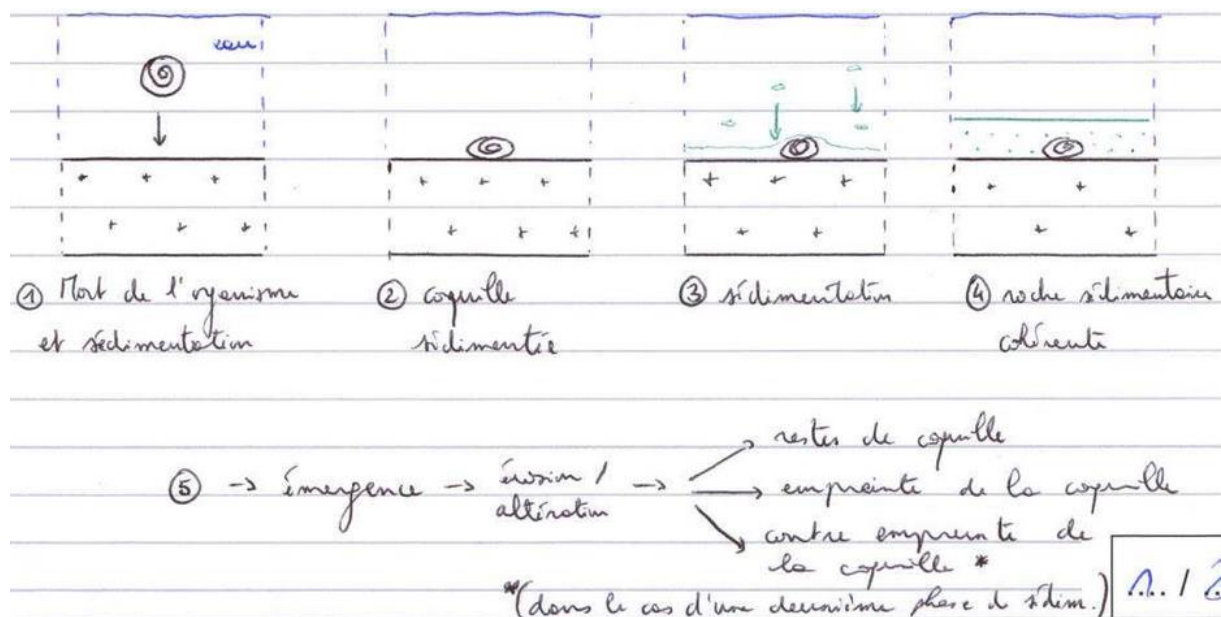 eau
① Mort de l'organisme
et sédimentation
② coquille
sédimentée
③ sédimentation
④ roche sédimentaire
cohérente
⑤ → émergence → érosion /
altération
→ restes de coquille
→ empreinte de la coquille
contre empreinte de
la coquille *
*(dans le cas d'une deuxième phase de sédim.)
1../